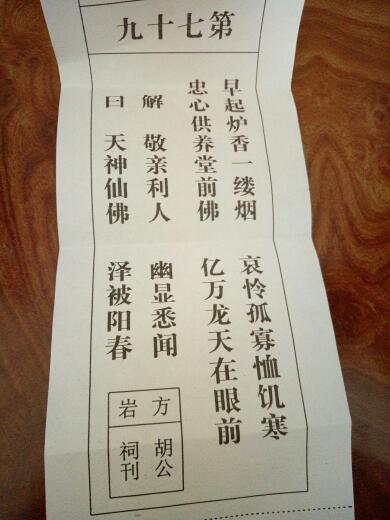 第七十九
早起炉香一缕烟 哀怜孤寡恤饥寒
忠心供养堂前佛 亿万龙天在眼前
解曰
敬亲利人 幽显悉闻
天神仙佛 泽被阳春
方岩
胡公
祠刊